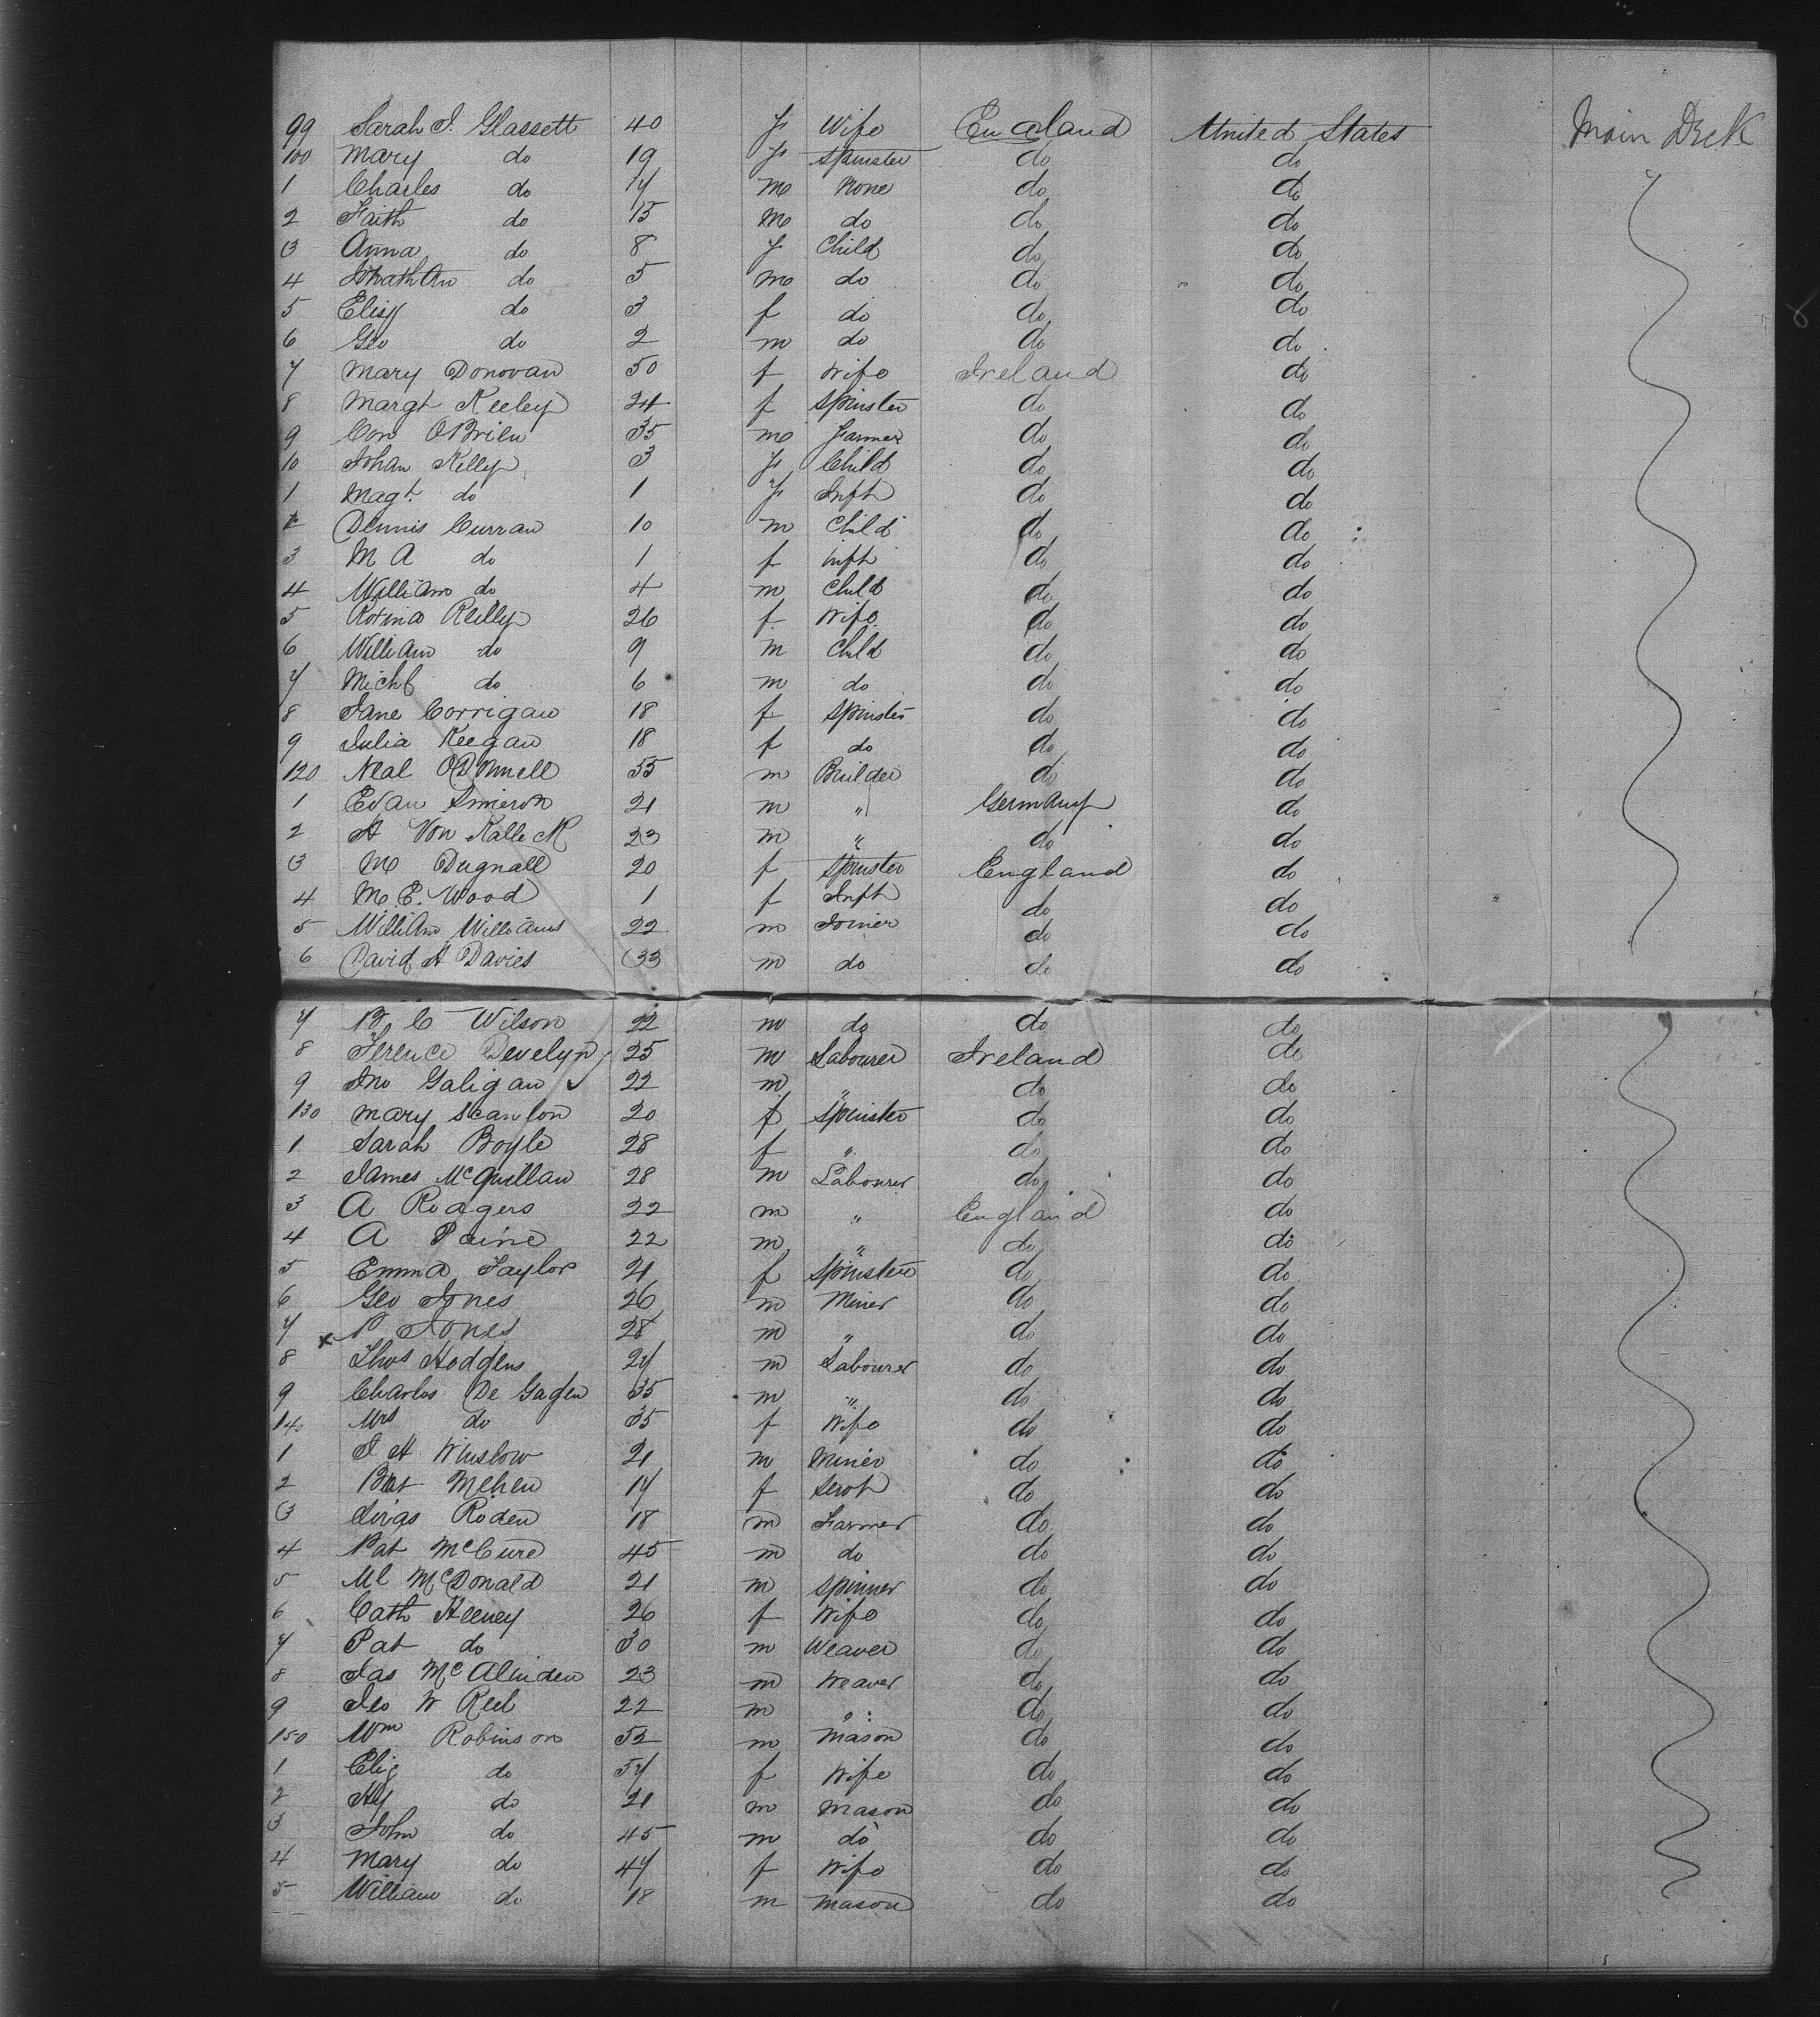 99 Sarah J. Glassett 40 f Wife England United States Main Deck
100 Mary do 19 f Spinster do do
1 Charles do 17 m None do do
2 Faith do 15 m do do do
3 Anna do 8 f Child do do
4 do 5 m do do do
5 do 3 f do do do
6 Geo do 2 m do do do
7 Mary Donovan 50 f Wife Ireland do
8 Margt Keeley 24 f Spinster do do
9 Con OBrien 35 m Farmer do do
10 Johan Kelly 3 f Child do do
1 Magt. do 1 f Inft do do
2 Dennis Curran 10 m Child do do
3 M A do 1 f inft do do
4 William do 4 m Child do do
5 Reilly 26 f Wife do do
6 William do 9 m Child do do
7 Michl do 6 m do do do
8 Jane Corrigan 18 f Spinster do do
9 Julia Keegan 18 f do do do
120 Neal ODonnell 55 m Builder do do
1 21 m " Germany do
2 A Von 23 m " do do
3 M Dugnall 20 f Spinster England do
4 M. E. Wood 1 f Inft do do
5 William Williams 22 m Joiner do do
6 David A Davies 33 m do do do
7 C Wilson 22 m do do do
8 Terence Develyn 25 m Labourer Ireland do
9 Jno Galigan 22 m " do do
130 Mary Scanlon 20 f Spinster do do
1 Sarah Boyle 28 f " do do
2 James McQuillan 28 m Labourer do do
3 A Rodgers 22 m " England do
4 A Paine 22 m " do do
5 Emma Taylor 21 f Spinster do do
6 Geo Jones 26 m Miner do do
7 x P Jones 28 m " do do
8 Thos Hodgens 27 m Labourer do do
9 Charles De 35 m " do do
140 Mrs do 35 f Wife do do
1 J H Winslow 21 m Miner do do
2 17 f Servt do do
3 Roden 18 m Farmer do do
4 Pat 45 m do do do
5 Ml McDonald 21 m Spinner do do
6 Cath Keeney 26 f Wife do do
7 Pat do 30 m Weaver do do
8 Jas McAlinden 23 m Weaver do do
9 W 22 m " do do
150 Wm Robinson 52 m Mason do do
1 do 57 f Wife do do
2 Hy do 21 m Mason do do
3 John do 45 m do do do
4 Mary do 47 f Wife do do
5 William do 18 m Mason do do